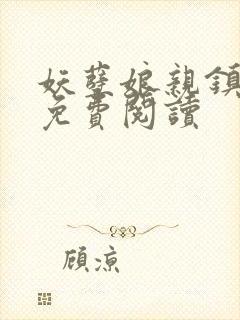 妖孽娘親鎮
免費閱讀
顧涼